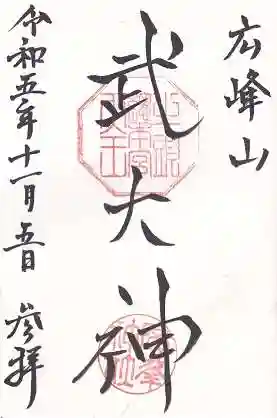 広峰山
武大神
令和五年十一月五日 参拝